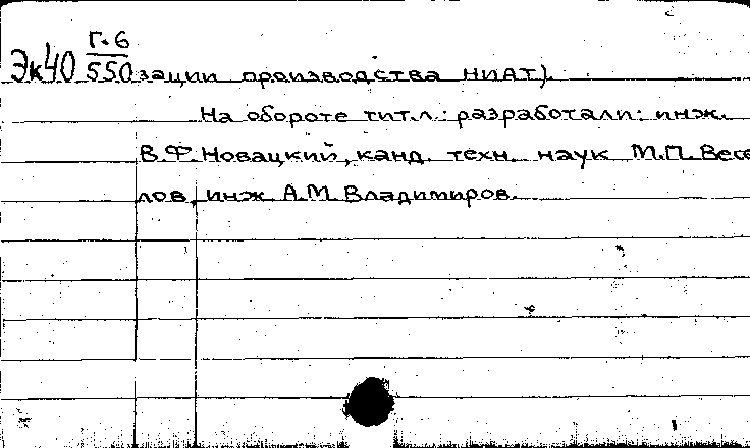 Г.6
Эк40 550 зации производства НИАТ).
На обороте тит.л.: разработали: инж.
В.Ф.Новацкий, канд. техн. наук М.П.Весе
лов, инж. А.М.Владимиров.